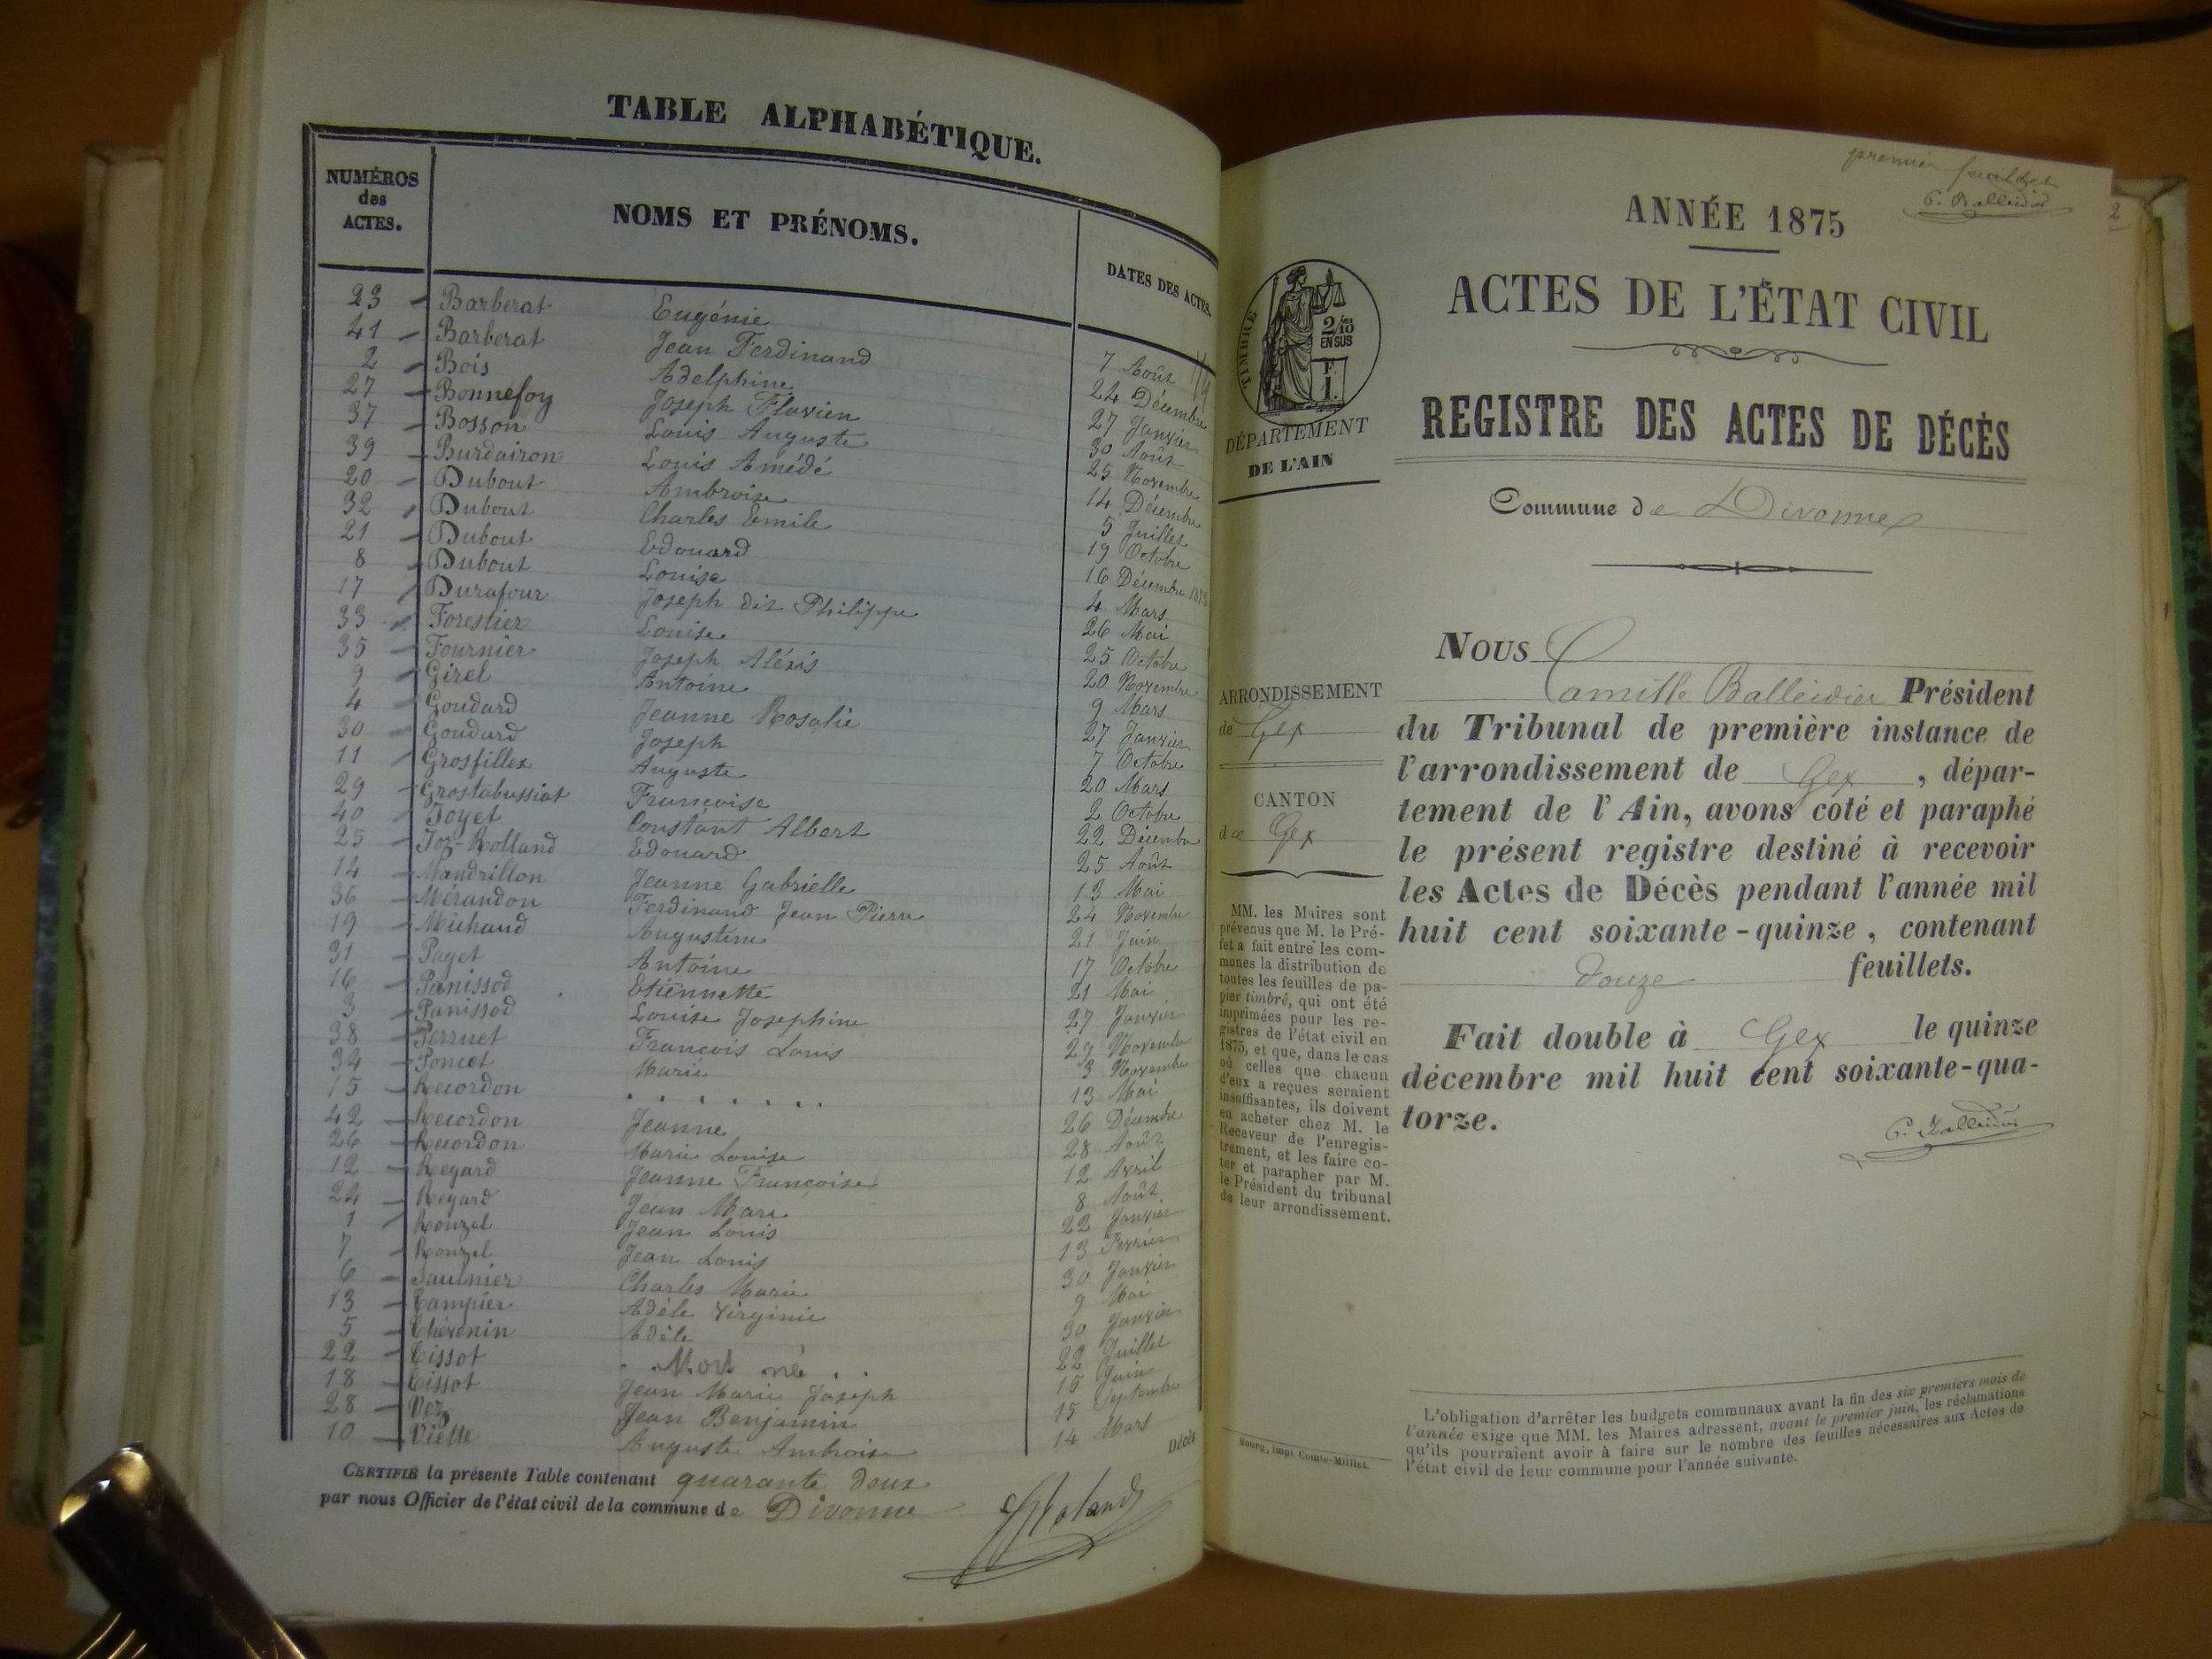 TABLE ALPHABÉTIQUE.
NUMÉROS des ACTES.
NOMS ET PRÉNOMS.
DATES DES ACTES.
23 Barberat Eugénie 7 Août
41 Barberat Jean Ferdinand 24 Décembre
2 Bois Adelphine 27 Janvier
27 Bonnefoy Joseph Flavien 30 Août
37 Bosson Louis Auguste 25 Novembre
39 Burdairon Louis Amédé 14 Décembre
20 Dubout Ambroise 5 Juillet
32 Dubout Charles Emile 19 Octobre
21 Dubout Edouard 16 Décembre
8 Dubout Louise 4 Mars
17 Durafour Joseph dit Philippe 26 Mai
33 Forestier Louise 25 Octobre
35 Fournier Joseph Aléxis 20 Novembre
9 Girel Antoine 9 Mars
4 Goudard Jeanne Rosalie 27 Janvier
30 Goudard Joseph 7 Octobre
11 Grosfillex Auguste 20 Mars
29 Grostabussiat Françoise 2 Octobre
40 Joyet Constant Albert 22 Décembre
25 Joz-Rolland Edouard 25 Août
14 Mandrillon Jeanne Gabrielle 13 Mai
36 Mérandon Ferdinand Jean Pierre 24 Novembre
19 Michaud Augustine 21 Juin
31 Paget Antoine 17 Octobre
16 Panissod Etiennette 21 Mai
3 Panissod Louise Josephine 27 Janvier
38 Perruet François Louis 29 Novembre
34 Poncet Marie 3 Novembre
15 Recordon . . . . . . . . 13 Mai
42 Recordon Jeanne 26 Décembre
26 Recordon Marie Louise 28 Août
12 Regard Jeanne Françoise 12 Avril
24 Regard Jean Marc 8 Août
1 Rouzel Jean Louis 22 Janvier
7 Rouzel Jean Louis 13 Février
6 Saulnier Charles Marie 30 Janvier
13 Tampier Adèle Virginie 9 Mai
5 Thévenin Adèle 30 Janvier
22 Tissot . . Mort né . . 22 Juillet
18 Tissot Jean Marie Joseph 15 Juin
28 Vez Jean Benjamin 15 Septembre
10 Viette Auguste Ambroise 14 Mars
Décès
CERTIFIÉ la présente Table contenant quarante deux
par nous Officier de l'état civil de la commune de Divonne
premier feuillet
C. Balleidier
2
ANNÉE 1875
ACTES DE L'ÉTAT CIVIL
REGISTRE DES ACTES DE DÉCÈS
Commune de Divonne
TIMBRE
2/10
EN SUS
F.
1.
DÉPARTEMENT
DE L'AIN
ARRONDISSEMENT
de Gex
CANTON
de Gex
MM. les Maires sont
prévenus que M. le Pré-
fet a fait entre les com-
munes la distribution de
toutes les feuilles de pa-
pier timbré, qui ont été
imprimées pour les re-
gistres de l'état civil en
1875, et que, dans le cas
où celles que chacun
d'eux a reçues seraient
insuffisantes, ils doivent
en acheter chez M. le
Receveur de l'enregis-
trement, et les faire co-
ter et parapher par M.
le Président du tribunal
de leur arrondissement.
NOUS
Camille Balleidier Président
du Tribunal de première instance de
l'arrondissement de Gex, dépar-
tement de l'Ain, avons coté et paraphé
le présent registre destiné à recevoir
les Actes de Décès pendant l'année mil
huit cent soixante-quinze, contenant
douze feuillets.
Fait double à Gex le quinze
décembre mil huit cent soixante-qua-
torze.
C. Balleidier
L'obligation d'arrêter les budgets communaux avant la fin des six premiers mois de
l'année exige que MM. les Maires adressent, avant le premier juin, les réclamations
qu'ils pourraient avoir à faire sur le nombre des feuilles nécessaires aux Actes de
l'état civil de leur commune pour l'année suivante.
Bourg, impr. Comte-Milliet.